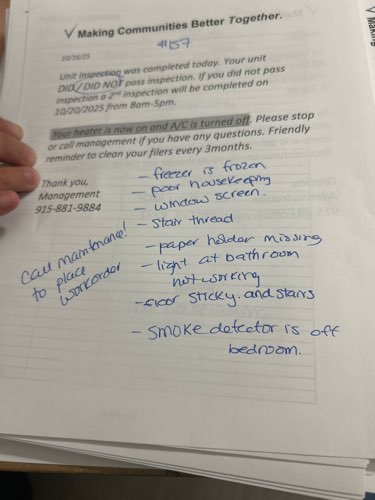 √ Making Communities Better Together.
#157
10/16/25
Unit inspection was completed today. Your unit
DID / DID NOT pass inspection. If you did not pass
inspection a 2nd inspection will be completed on
10/20/2025 from 8am-5pm.
Your heater is now on and A/C is turned off. Please stop
or call management if you have any questions. Friendly
reminder to clean your filers every 3months.
Thank you,
Management
915-881-9884
- freezer is frozen
- poor housekeeping
- window screen.
- Stair thread
- paper holder missing
- light at bathroom
not working
- floor sticky. and stairs
- smoke detector is off
bedroom.
Call maintnance!
to place
workorder